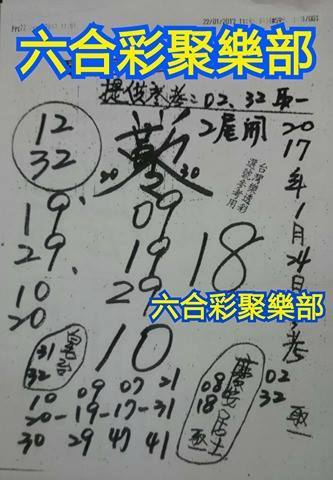 22/01/2017 11:
六合彩聚樂部
提供參考：02、32 取一
12
32
2尾開
20 30
2017年1月24日參考
台灣樂透彩
選號參考用
19
29
10
20
09
19
29
18
六合彩聚樂部
10
31
32
10 09 07 21
20-19-17-31
30 29 47 41
08
18
居士
02
32
取一